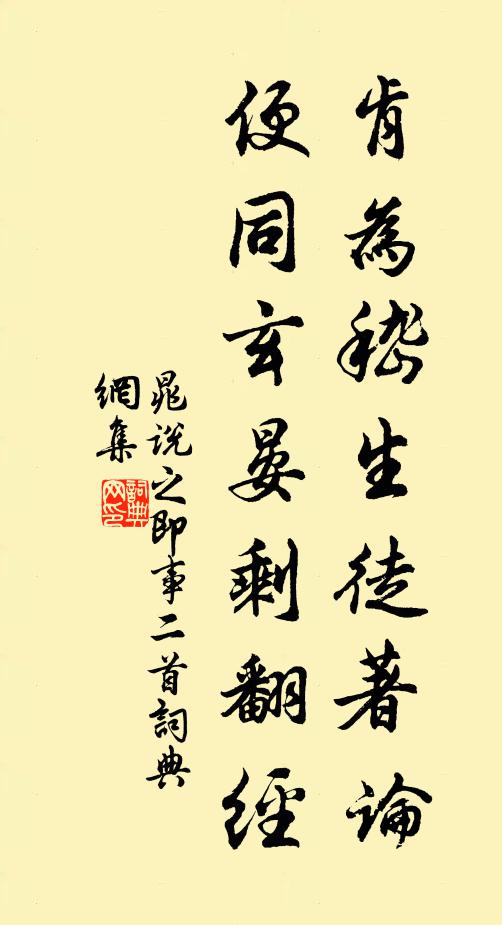 肯為嵇生徒著論
便同玄晏剩翻經
晁說之即事二首詞典
網集
詞典
网印